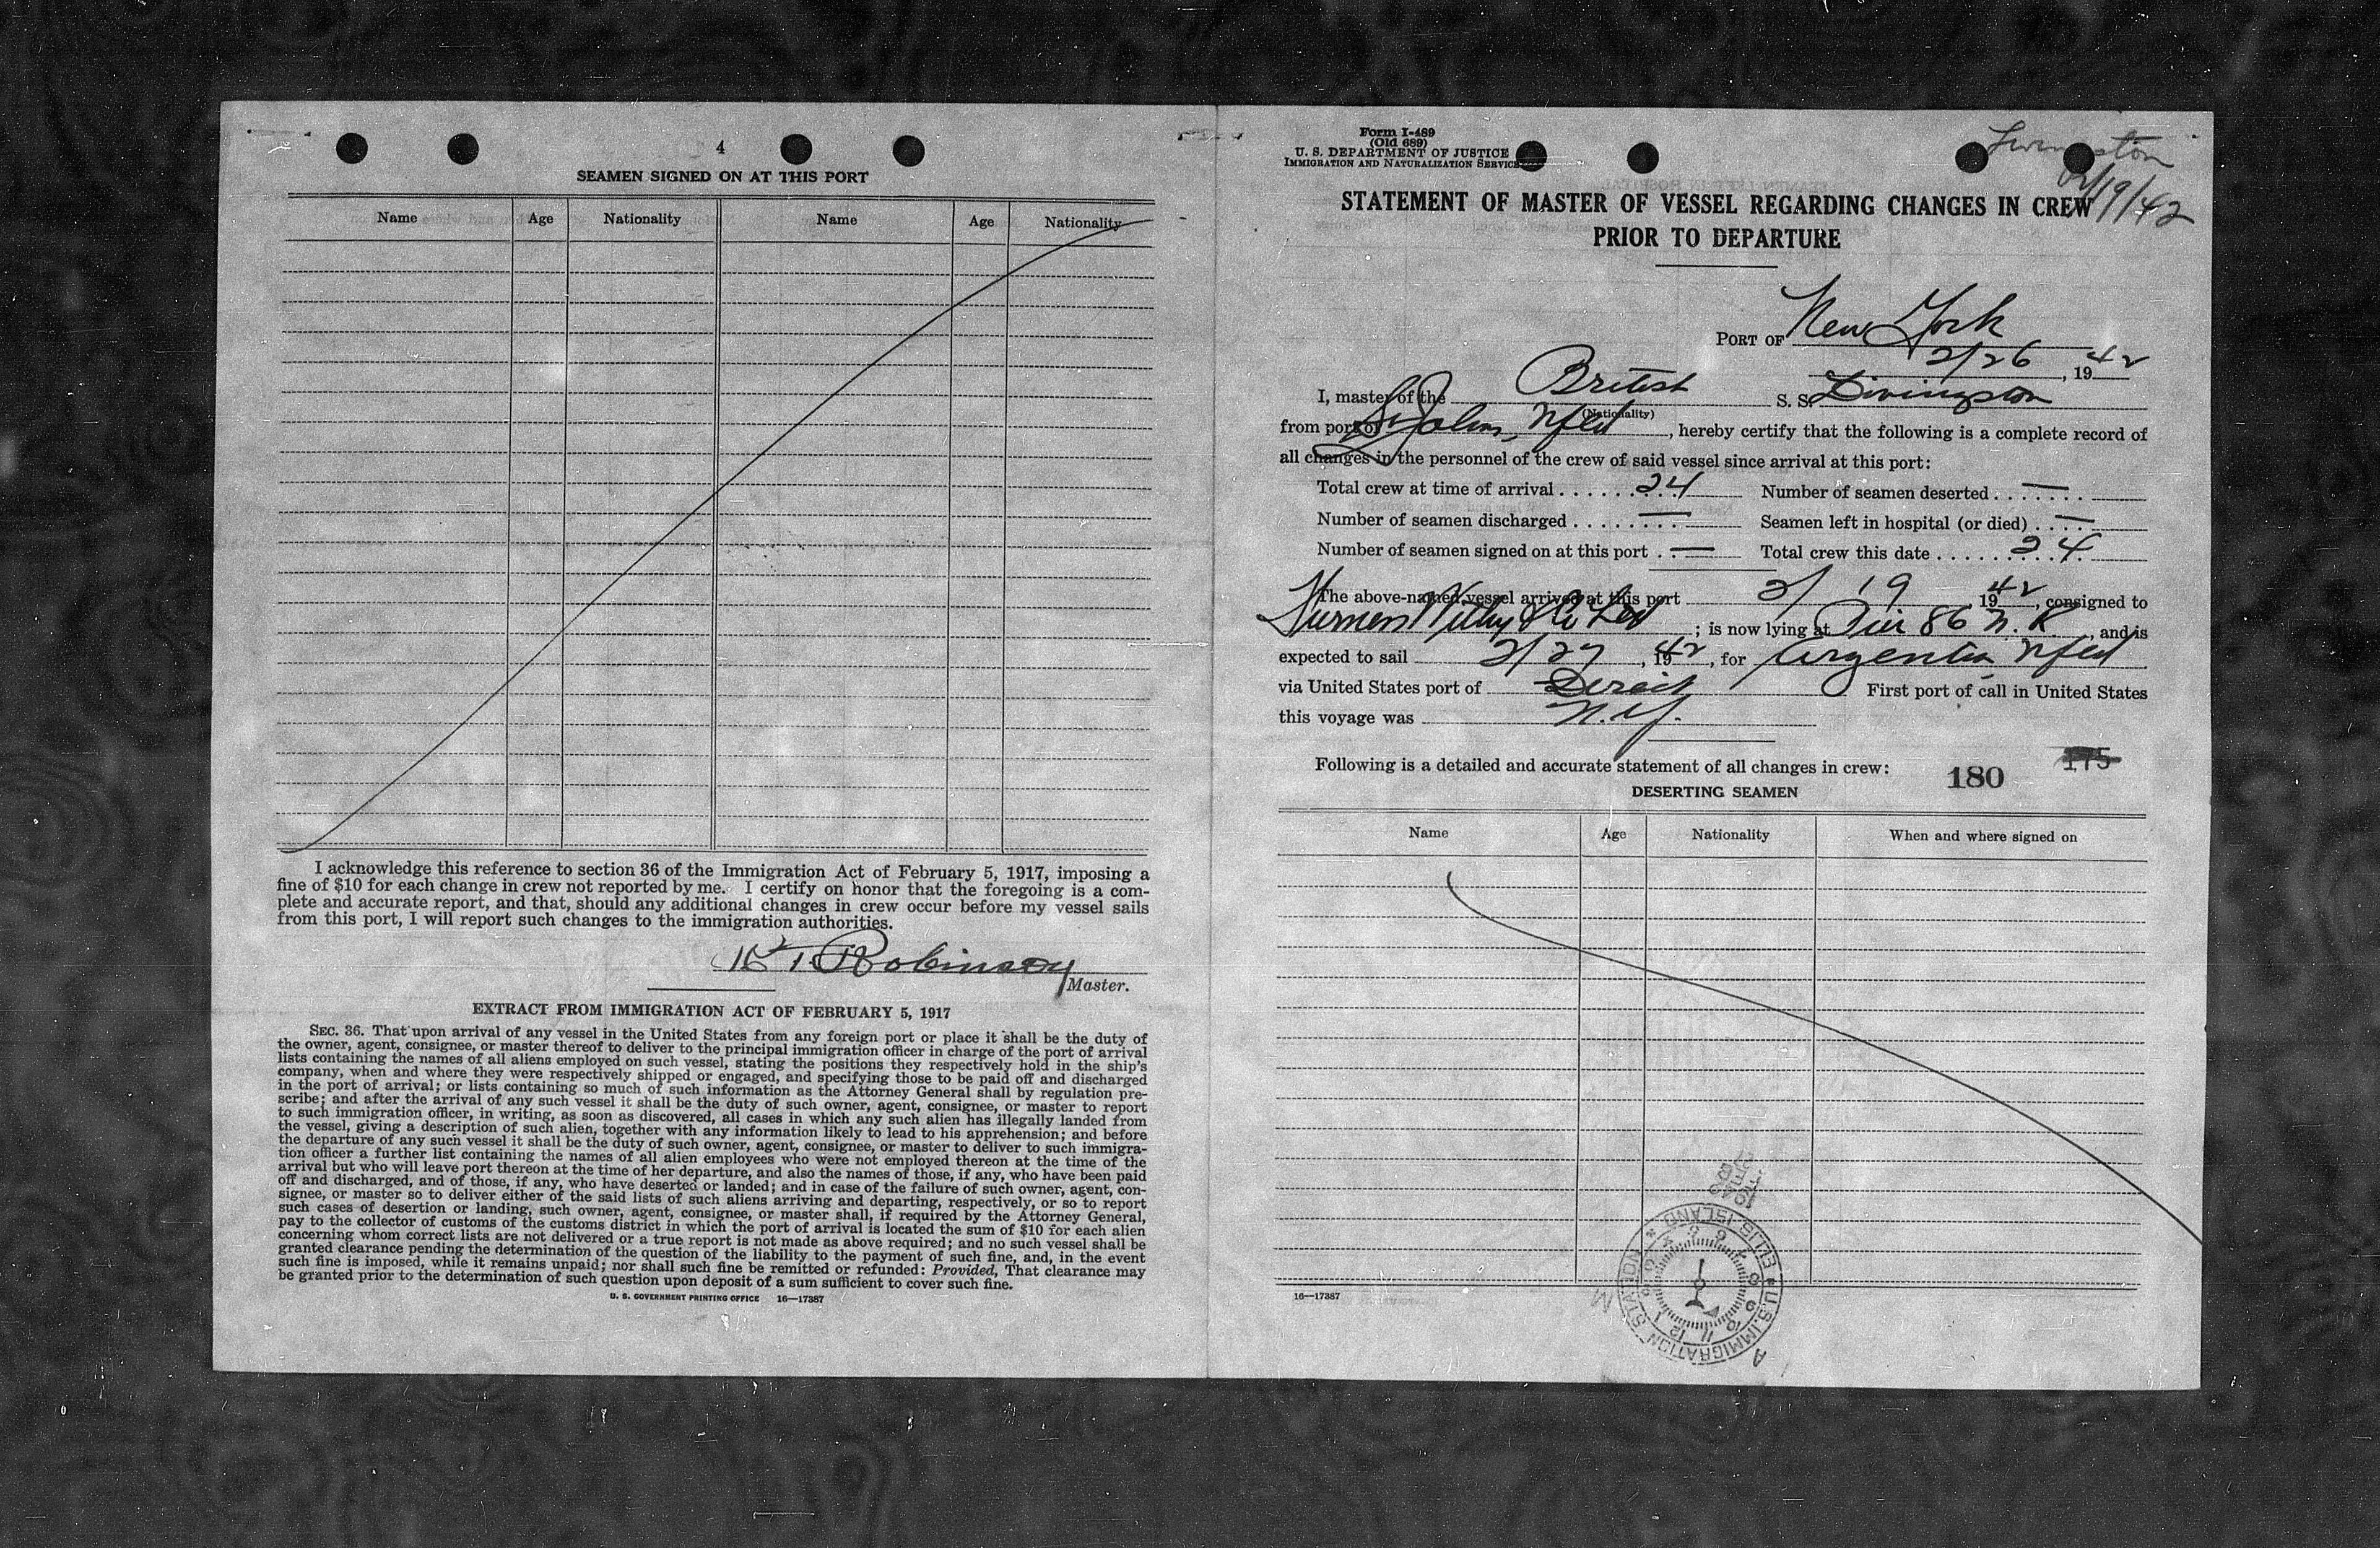 4
SEAMEN SIGNED ON AT THIS PORT
Name Age Nationality Name Age Nationality
I acknowledge this reference to section 36 of the Immigration Act of February 5, 1917, imposing a
fine of $10 for each change in crew not reported by me. I certify on honor that the foregoing is a com-
plete and accurate report, and that, should any additional changes in crew occur before my vessel sails
from this port, I will report such changes to the immigration authorities.
Robinson
Master.
EXTRACT FROM IMMIGRATION ACT OF FEBRUARY 5, 1917
SEC. 36. That upon arrival of any vessel in the United States from any foreign port or place it shall be the duty of
the owner, agent, consignee, or master thereof to deliver to the principal immigration officer in charge of the port of arrival
lists containing the names of all aliens employed on such vessel, stating the positions they respectively hold in the ship's
company, when and where they were respectively shipped or engaged, and specifying those to be paid off and discharged
in the port of arrival; or lists containing so much of such information as the Attorney General shall by regulation pre-
scribe; and after the arrival of any such vessel it shall be the duty of such owner, agent, consignee, or master to report
to such immigration officer, in writing, as soon as discovered, all cases in which any such alien has illegally landed from
the vessel, giving a description of such alien, together with any information likely to lead to his apprehension; and before
the departure of any such vessel it shall be the duty of such owner, agent, consignee, or master to deliver to such immigra-
tion officer a further list containing the names of all alien employees who were not employed thereon at the time of the
arrival but who will leave port thereon at the time of her departure, and also the names of those, if any, who have been paid
off and discharged, and of those, if any, who have deserted or landed; and in case of the failure of such owner, agent, con-
signee, or master so to deliver either of the said lists of such aliens arriving and departing, respectively, or so to report
such cases of desertion or landing, such owner, agent, consignee, or master shall, if required by the Attorney General,
pay to the collector of customs of the customs district in which the port of arrival is located the sum of $10 for each alien
concerning whom correct lists are not delivered or a true report is not made as above required; and no such vessel shall be
granted clearance pending the determination of the question of the liability to the payment of such fine, and, in the event
such fine is imposed, while it remains unpaid; nor shall such fine be remitted or refunded: Provided, That clearance may
be granted prior to the determination of such question upon deposit of a sum sufficient to cover such fine.
U. S. GOVERNMENT PRINTING OFFICE 16—17387
Form I-489
(Old 689)
U. S. DEPARTMENT OF JUSTICE
IMMIGRATION AND NATURALIZATION SERVICE
Livingston
2/19/42
STATEMENT OF MASTER OF VESSEL REGARDING CHANGES IN CREW
PRIOR TO DEPARTURE
PORT OF New York
2/26, 1942
I, master of the British S. S. Livingston
(Nationality)
from port of St Johns, Nfld, hereby certify that the following is a complete record of
all changes in the personnel of the crew of said vessel since arrival at this port:
Total crew at time of arrival . . . . . . 24 Number of seamen deserted . . . . . . . —
Number of seamen discharged . . . . . . . . — Seamen left in hospital (or died) . . . . —
Number of seamen signed on at this port . . — Total crew this date . . . . . . 24
The above-named vessel arrived at this port 2/19 1942, consigned to
Furness Withy & Co Ltd ; is now lying at Pier 86 N. R., and is
expected to sail 2/27, 1942, for Argentia Nfld
via United States port of Direct First port of call in United States
this voyage was N.Y.
Following is a detailed and accurate statement of all changes in crew: 180 175
DESERTING SEAMEN
Name Age Nationality When and where signed on
16—17387
U.S. IMMIGRATION STATION ELLIS ISLAND